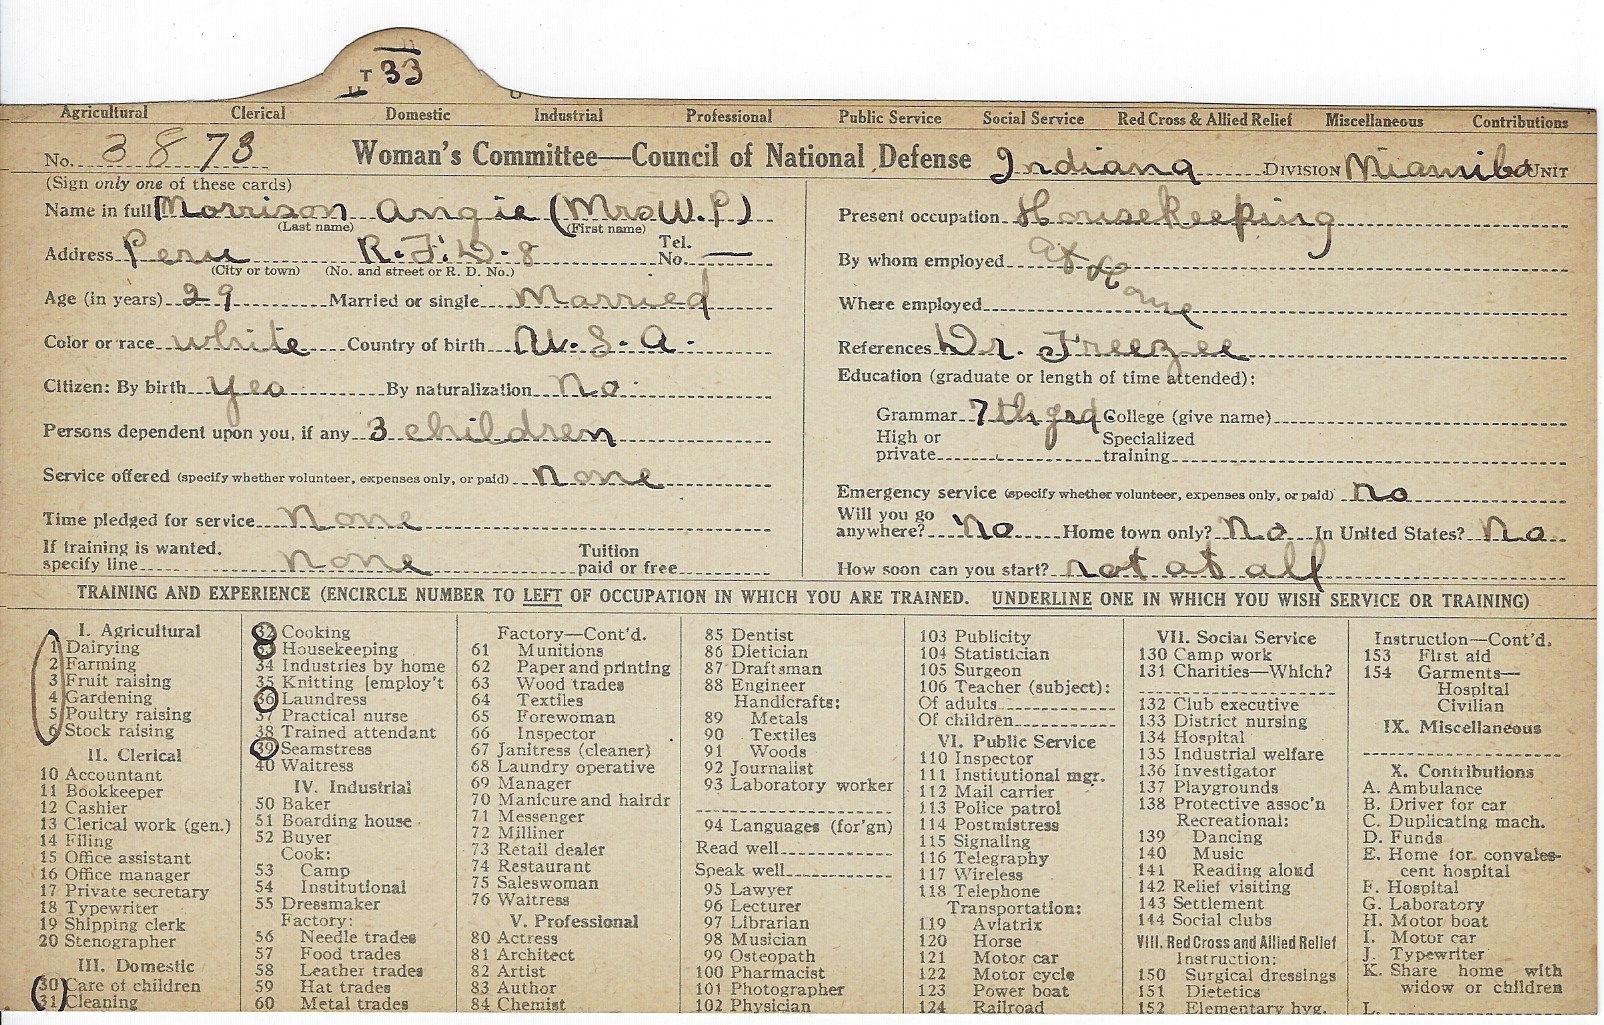 T 33
Agricultural Clerical Domestic Industrial Professional Public Service Social Service Red Cross & Allied Relief Miscellaneous Contributions
No. 3873 Woman's Committee—Council of National Defense Indiana DIVISION Miami Co UNIT
(Sign only one of these cards)
Name in full Morrison Angie (Mrs W. P)
(Last name) (First name)
Address Peru R.F.D-8 Tel. No. —
(City or town) (No. and street or R. D. No.)
Age (in years) 29 Married or single Married
Color or race white Country of birth U.S.A.
Citizen: By birth yes By naturalization no
Persons dependent upon you, if any 3 children
Service offered (specify whether volunteer, expenses only, or paid) none
Time pledged for service none
If training is wanted, specify line none Tuition paid or free
Present occupation Housekeeping
By whom employed At Home
Where employed
References Dr. Freezee
Education (graduate or length of time attended):
Grammar 7th grd College (give name)
High or private Specialized training
Emergency service (specify whether volunteer, expenses only, or paid) no
Will you go anywhere? no Home town only? no In United States? no
How soon can you start? not at all
TRAINING AND EXPERIENCE (ENCIRCLE NUMBER TO LEFT OF OCCUPATION IN WHICH YOU ARE TRAINED. UNDERLINE ONE IN WHICH YOU WISH SERVICE OR TRAINING)
I. Agricultural
1 Dairying
2 Farming
3 Fruit raising
4 Gardening
5 Poultry raising
6 Stock raising
II. Clerical
10 Accountant
11 Bookkeeper
12 Cashier
13 Clerical work (gen.)
14 Filing
15 Office assistant
16 Office manager
17 Private secretary
18 Typewriter
19 Shipping clerk
20 Stenographer
III. Domestic
30 Care of children
31 Cleaning
32 Cooking
33 Housekeeping
34 Industries by home
35 Knitting [employ't
36 Laundress
37 Practical nurse
38 Trained attendant
39 Seamstress
40 Waitress
IV. Industrial
50 Baker
51 Boarding house
52 Buyer
Cook:
53 Camp
54 Institutional
55 Dressmaker
Factory:
56 Needle trades
57 Food trades
58 Leather trades
59 Hat trades
60 Metal trades
Factory—Cont'd.
61 Munitions
62 Paper and printing
63 Wood trades
64 Textiles
65 Forewoman
66 Inspector
67 Janitress (cleaner)
68 Laundry operative
69 Manager
70 Manicure and hairdr
71 Messenger
72 Milliner
73 Retail dealer
74 Restaurant
75 Saleswoman
76 Waitress
V. Professional
80 Actress
81 Architect
82 Artist
83 Author
84 Chemist
85 Dentist
86 Dietician
87 Draftsman
88 Engineer
Handicrafts:
89 Metals
90 Textiles
91 Woods
92 Journalist
93 Laboratory worker
94 Languages (for'gn)
Read well
Speak well
95 Lawyer
96 Lecturer
97 Librarian
98 Musician
99 Osteopath
100 Pharmacist
101 Photographer
102 Physician
103 Publicity
104 Statistician
105 Surgeon
106 Teacher (subject):
Of adults
Of children
VI. Public Service
110 Inspector
111 Institutional mgr.
112 Mail carrier
113 Police patrol
114 Postmistress
115 Signaling
116 Telegraphy
117 Wireless
118 Telephone
Transportation:
119 Aviatrix
120 Horse
121 Motor car
122 Motor cycle
123 Power boat
124 Railroad
VII. Social Service
130 Camp work
131 Charities—Which?
132 Club executive
133 District nursing
134 Hospital
135 Industrial welfare
136 Investigator
137 Playgrounds
138 Protective assoc'n
Recreational:
139 Dancing
140 Music
141 Reading aloud
142 Relief visiting
143 Settlement
144 Social clubs
VIII. Red Cross and Allied Relief
Instruction:
150 Surgical dressings
151 Dietetics
152 Elementary hyg.
Instruction—Cont'd.
153 First aid
154 Garments—
Hospital
Civilian
IX. Miscellaneous
X. Contributions
A. Ambulance
B. Driver for car
C. Duplicating mach.
D. Funds
E. Home for convales-
cent hospital
F. Hospital
G. Laboratory
H. Motor boat
I. Motor car
J. Typewriter
K. Share home with
widow or children
L.